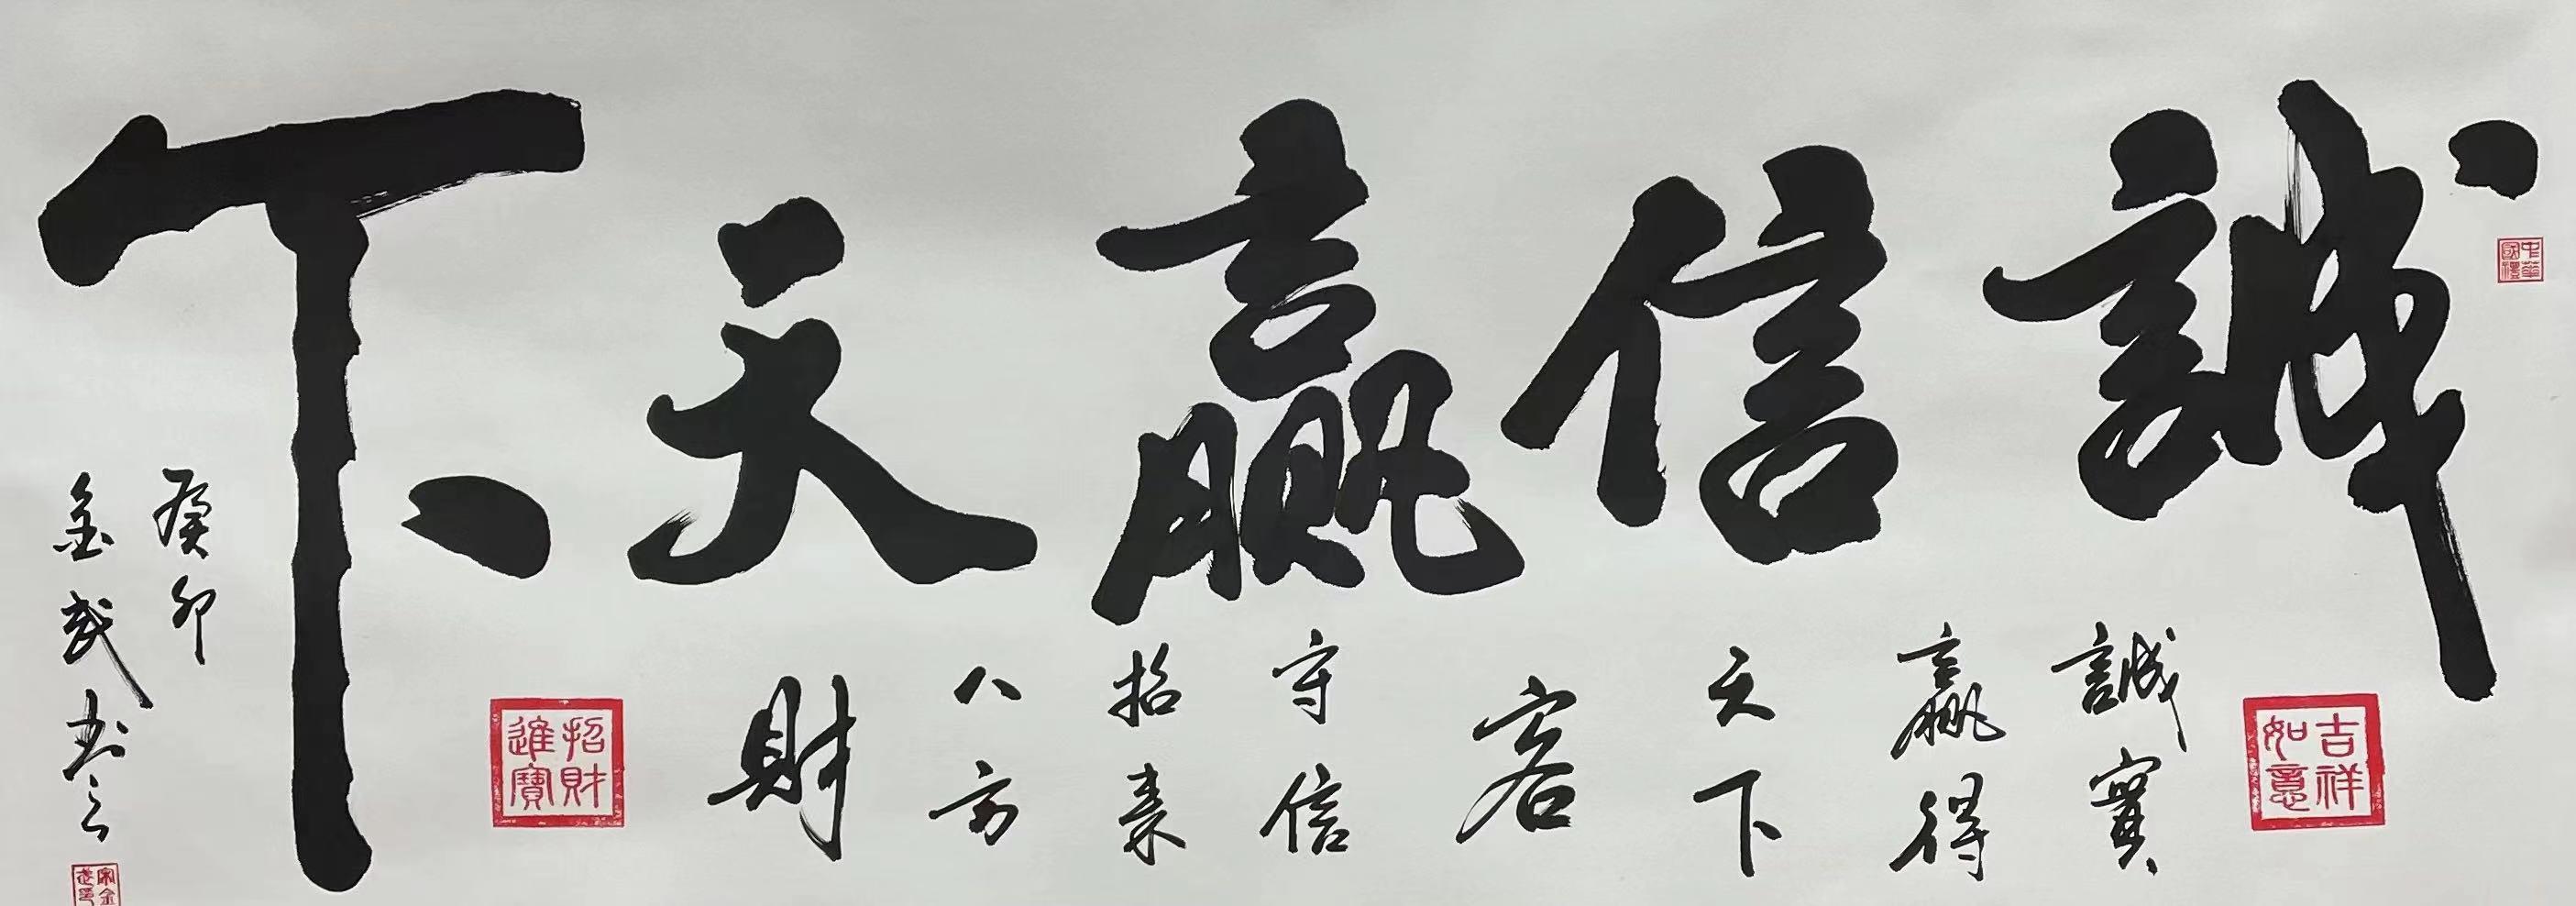 誠信赢天下
誠實
赢得
天下
客
守信
招来
八方
財
癸卯
金武書
吉祥如意
招財進寶
中華國禮